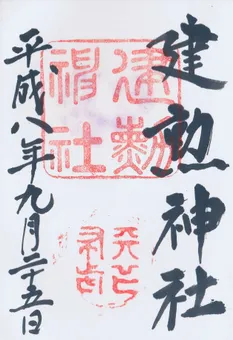 建勲神社
建勲
神社
平成八年九月二十五日